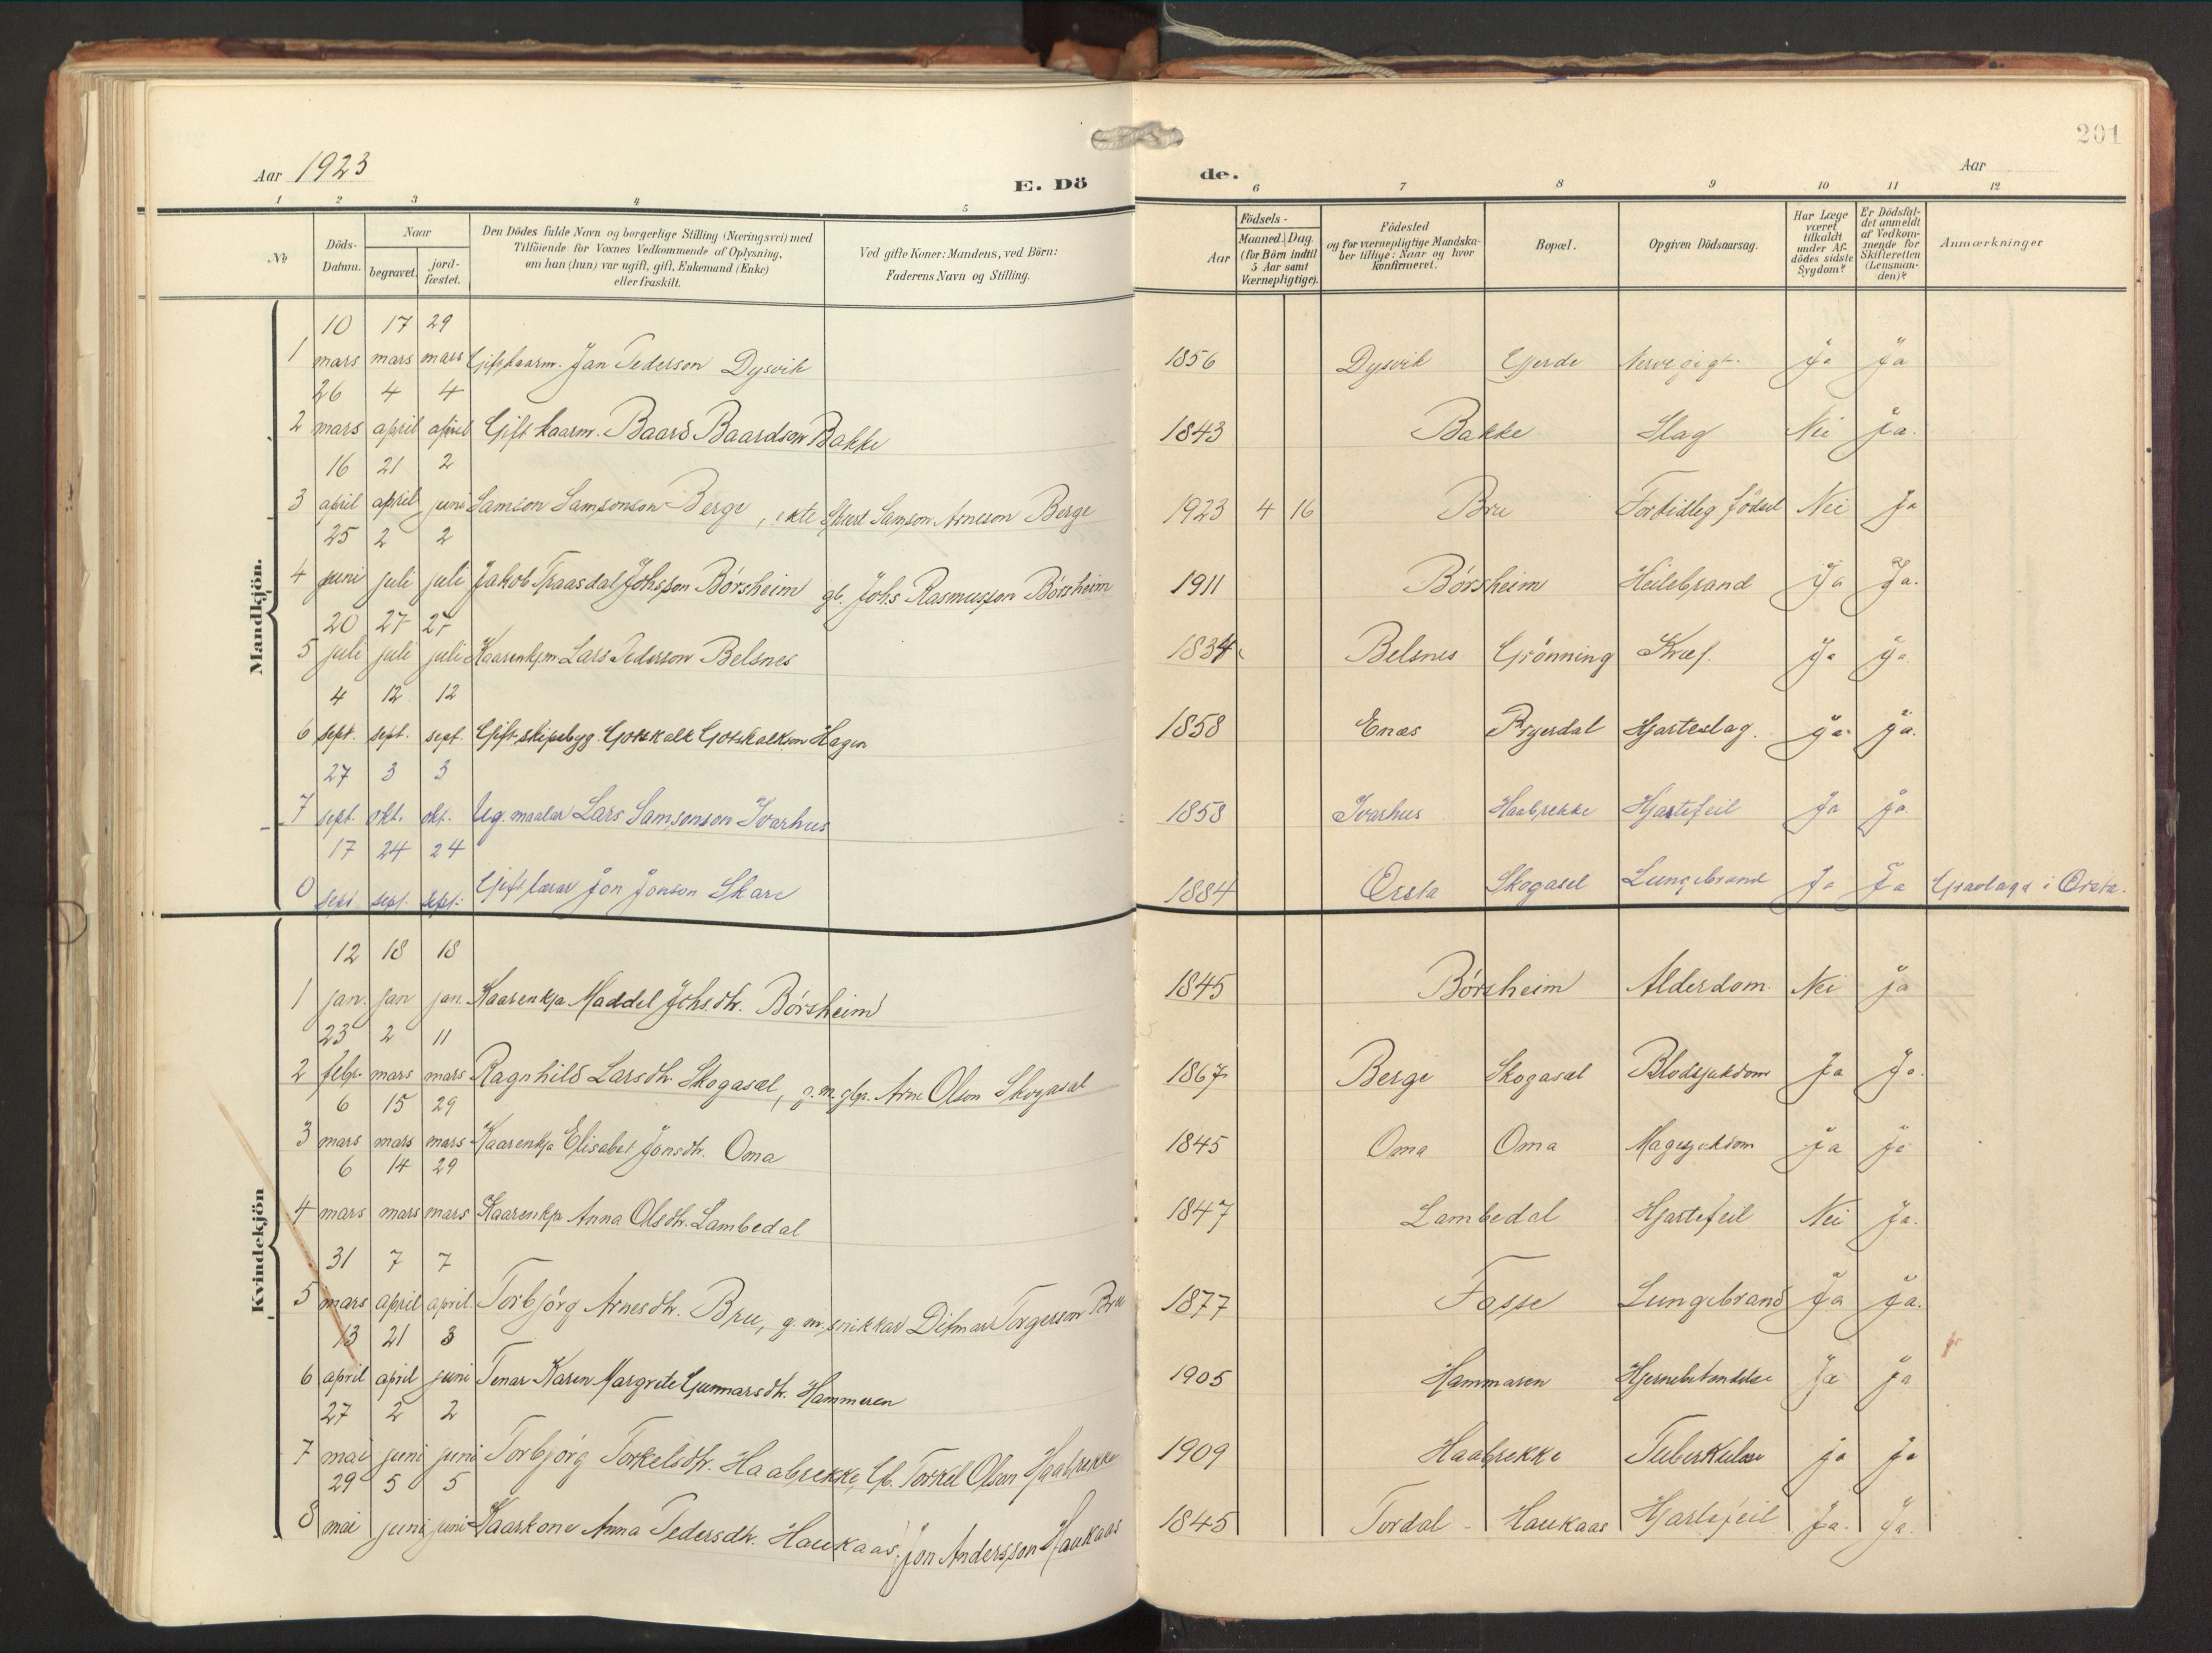 201
Aar 1923
E. Dö de.
Aar
1 2 3 4 5 6 7 8 9 10 11 12
№
Döds-Datum.
Naar
begravet.
jord-fæstet.
Den Dödes fulde Navn og borgerlige Stilling (Næringsvei) med
Tilföiende for Voxnes Vedkommende af Oplysning,
om han (hun) var ugift, gift, Enkemand (Enke)
eller fraskilt.
Ved gifte Koner: Mandens, ved Börn:
Faderens Navn og Stilling.
Födsels-
Aar
Maaned. Dag.
(for Börn indtil
5 Aar samt
Værnepligtige).
Födested
og for værnepligtige Mandska-
ber tillige: Naar og hvor
konfirmeret.
Bopæl.
Opgiven Dödsaarsag.
Har Læge
været
tilkaldt
under Af-
dödes sidste
Sygdom?
Er Dödsfal-
det anmeldt
af Vedkom-
mende for
Skifteretten
(Lensman-
den)?
Anmærkninger
Mandkjön.
10 17 29
1 mars mars mars Gift kaarm. Jan Pederson Dysvik 1856 Dysvik Gjerde Nervegigt. Ja Ja
26 4 4
2 mars april april Gift kaarm. Baard Baardson Bakke 1843 Bakke Slag Nei Ja.
16 21 2
3 april april juni Samson Samsonson Berge, ekte Samson Arneson Berge 1923 4 16 Bru Fortidleg födsel Nei Ja
25 2 2
4 juni juli juli Jakob Traasdal Johsson Börsheim gb. Johs Rasmusson Börsheim 1911 Börsheim Heilebrand Ja Ja.
20 27 27
5 juli juli juli Kaarenkjm Lars Pederson Belsnes 1834 Belsnes Grönning Kræf. Ja Ja
4 12 12
6 sept. sept. sept. Gift skipsbyg. Gotskalk Gotskalkson Hagen 1858 Enæs Hjarteslag. Ja Ja.
27 3 3
7 sept. okt. okt. Ug. maalar Lars Samsonson Ivarhus 1858 Ivarhus Haabrekke Hjartefeil Ja Ja.
17 24 24
sept. sept. sept. Gift lærar Jon Jonson Skare 1884 Örsta Skogasel Lungebrand Ja Ja Gravlagd i Örsta.
Kvindekjön
12 18 18
1 jan. jan jan. Kaarenkja Maddel Johsdtr. Börsheim 1845 Börsheim Alderdom. Nei Ja
23 2 11
2 febr. mars mars Ragnhild Larsdtr. Skogasæl, g. m. gbr. Arne Olson Skogasæl 1867 Berge Skogasæl Blodsjukdom Ja Ja.
6 15 29
3 mars mars mars Kaarenkja Elisabet Jonsdtr. Oma 1845 Oma Oma Magesjukdom Ja Ja
6 14 29
4 mars mars mars Kaarenkja Anna Olsdtr. Lambedal 1847 Lambedal Hjartefeil Nei Ja.
31 7 7
5 mars april april. Torbjörg Arnesdtr. Bru, g. m. snikkar Ditmar Torgerson Bru 1877 Fosse Lungebrand Ja Ja.
13 21 3
6 april april juni Tenar Karen Margrete Gunnarsdtr. Hammeren 1905 Hammaren Hjernebetendelse Ja Ja
27 2 2
7 mai juni juni Torbjörg Torkelsdtr. Haabrekke, Gb. Torkel Olson Haabrekke 1909 Haabrekke Tuberkulose Ja Ja
29 5 5
8 mai juni juni Kaarkone Anna Pedersdtr. Haukaas. Jon Andersson Haukaas 1845 Tordal - Haukaas Hjartefeil Ja. Ja.